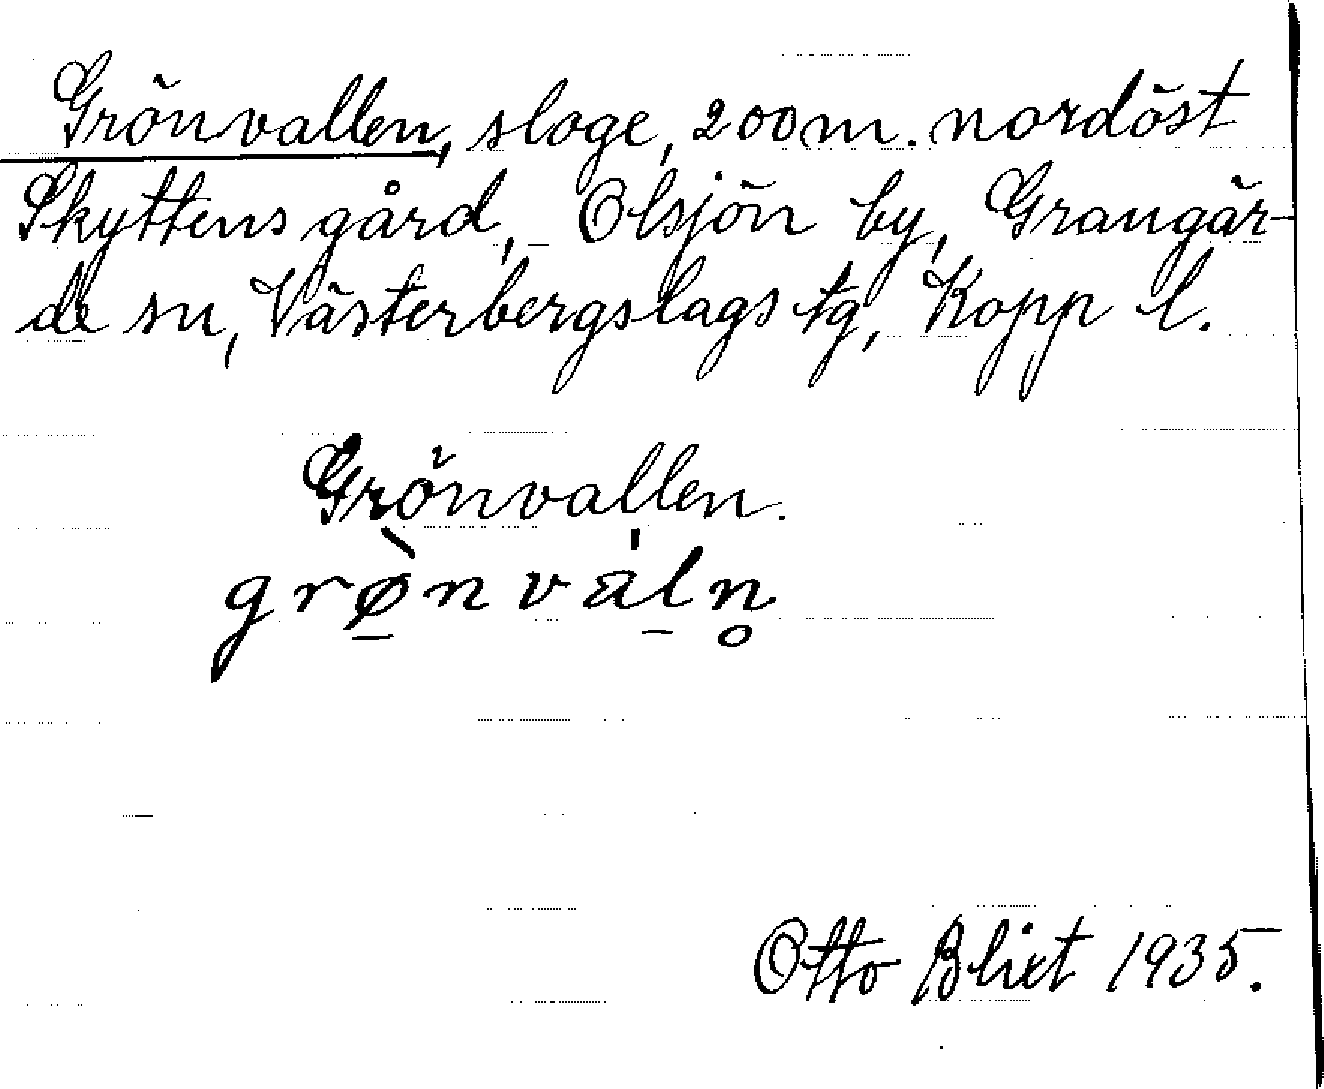 Grönvallen, sloge, 200 m. nordöst
Skyttens gård, Olsjön by, Grangär-
de sn, Västerbergslags tg, Kopp l.
Grönvallen.
grø̀nvaln̥
Otto Blixt 1935.